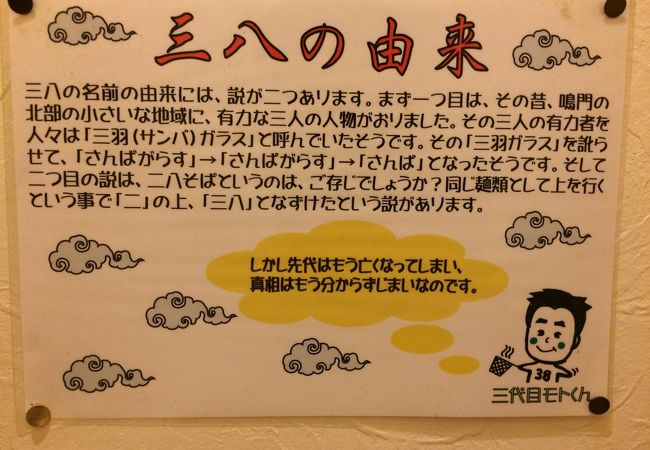 三八の由来
三八の名前の由来には、説が二つあります。まず一つ目は、その昔、鳴門の
北部の小さいな地域に、有力な三人の人物がおりました。その三人の有力者を
人々は「三羽(サンバ)ガラス」と呼んでいたそうです。その「三羽ガラス」を訛ら
せて、「さんばがらす」→「さんぱがらす」→「さんぱ」となったそうです。そして
二つ目の説は、二八そばというのは、ご存じでしょうか?同じ麺類として上を行く
という事で「二」の上、「三八」となずけたという説があります。
しかし先代はもう亡くなってしまい、
真相はもう分からずじまいなのです。
38
三代目モトくん